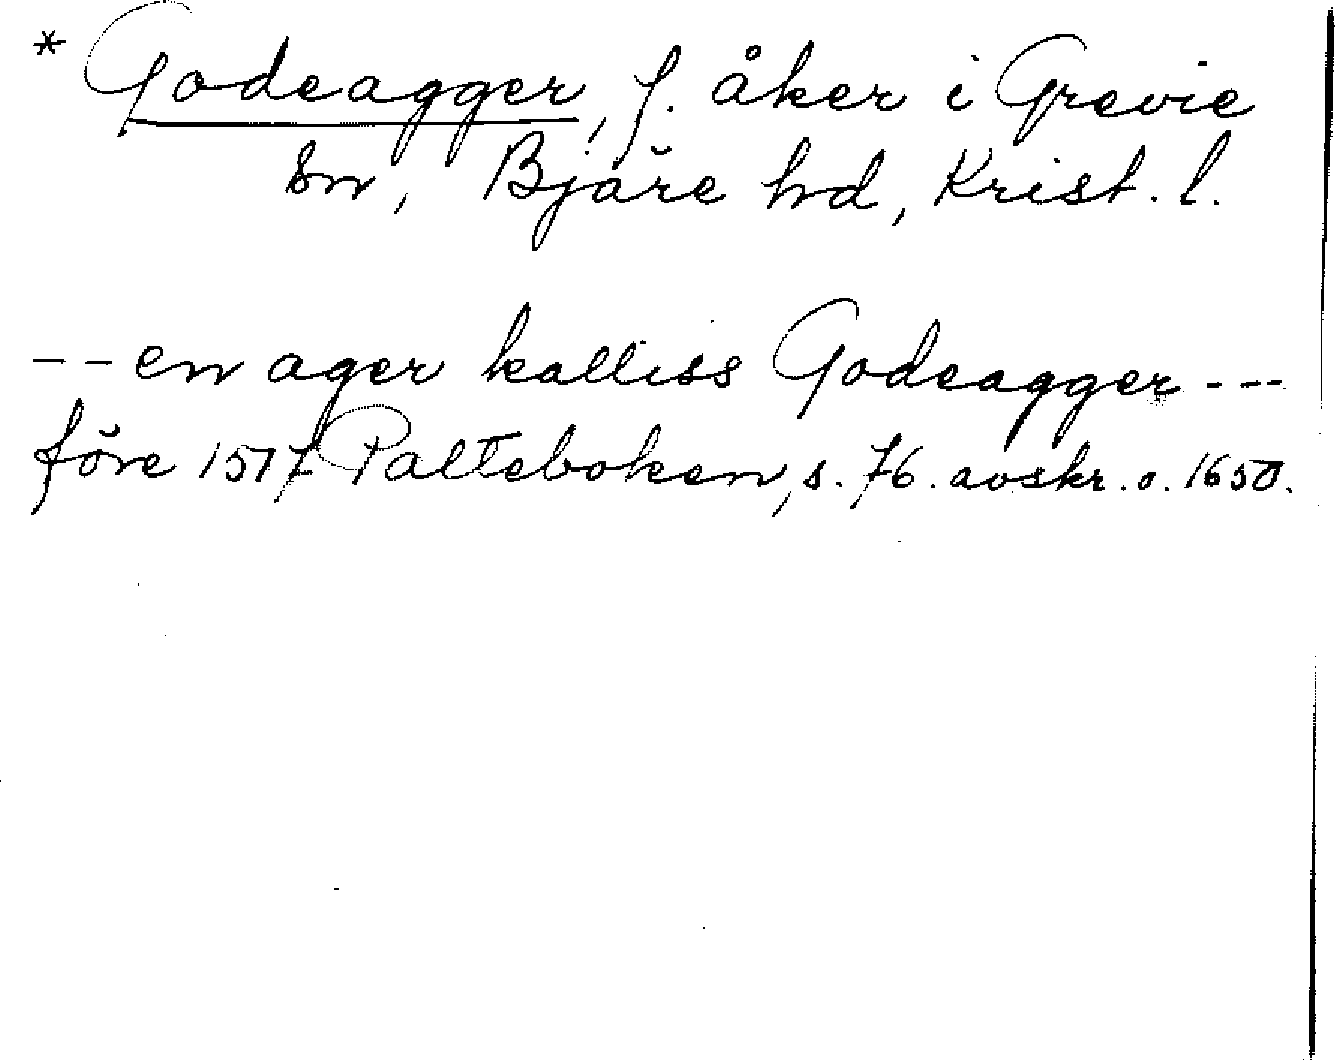 * Godeagger, f. åker i Grevie
sn, Bjäre hd, Krist. l.
-- en ager kalliss Godeagger ---
före 1517 Palteboken, s. 76. avskr. o. 1650.